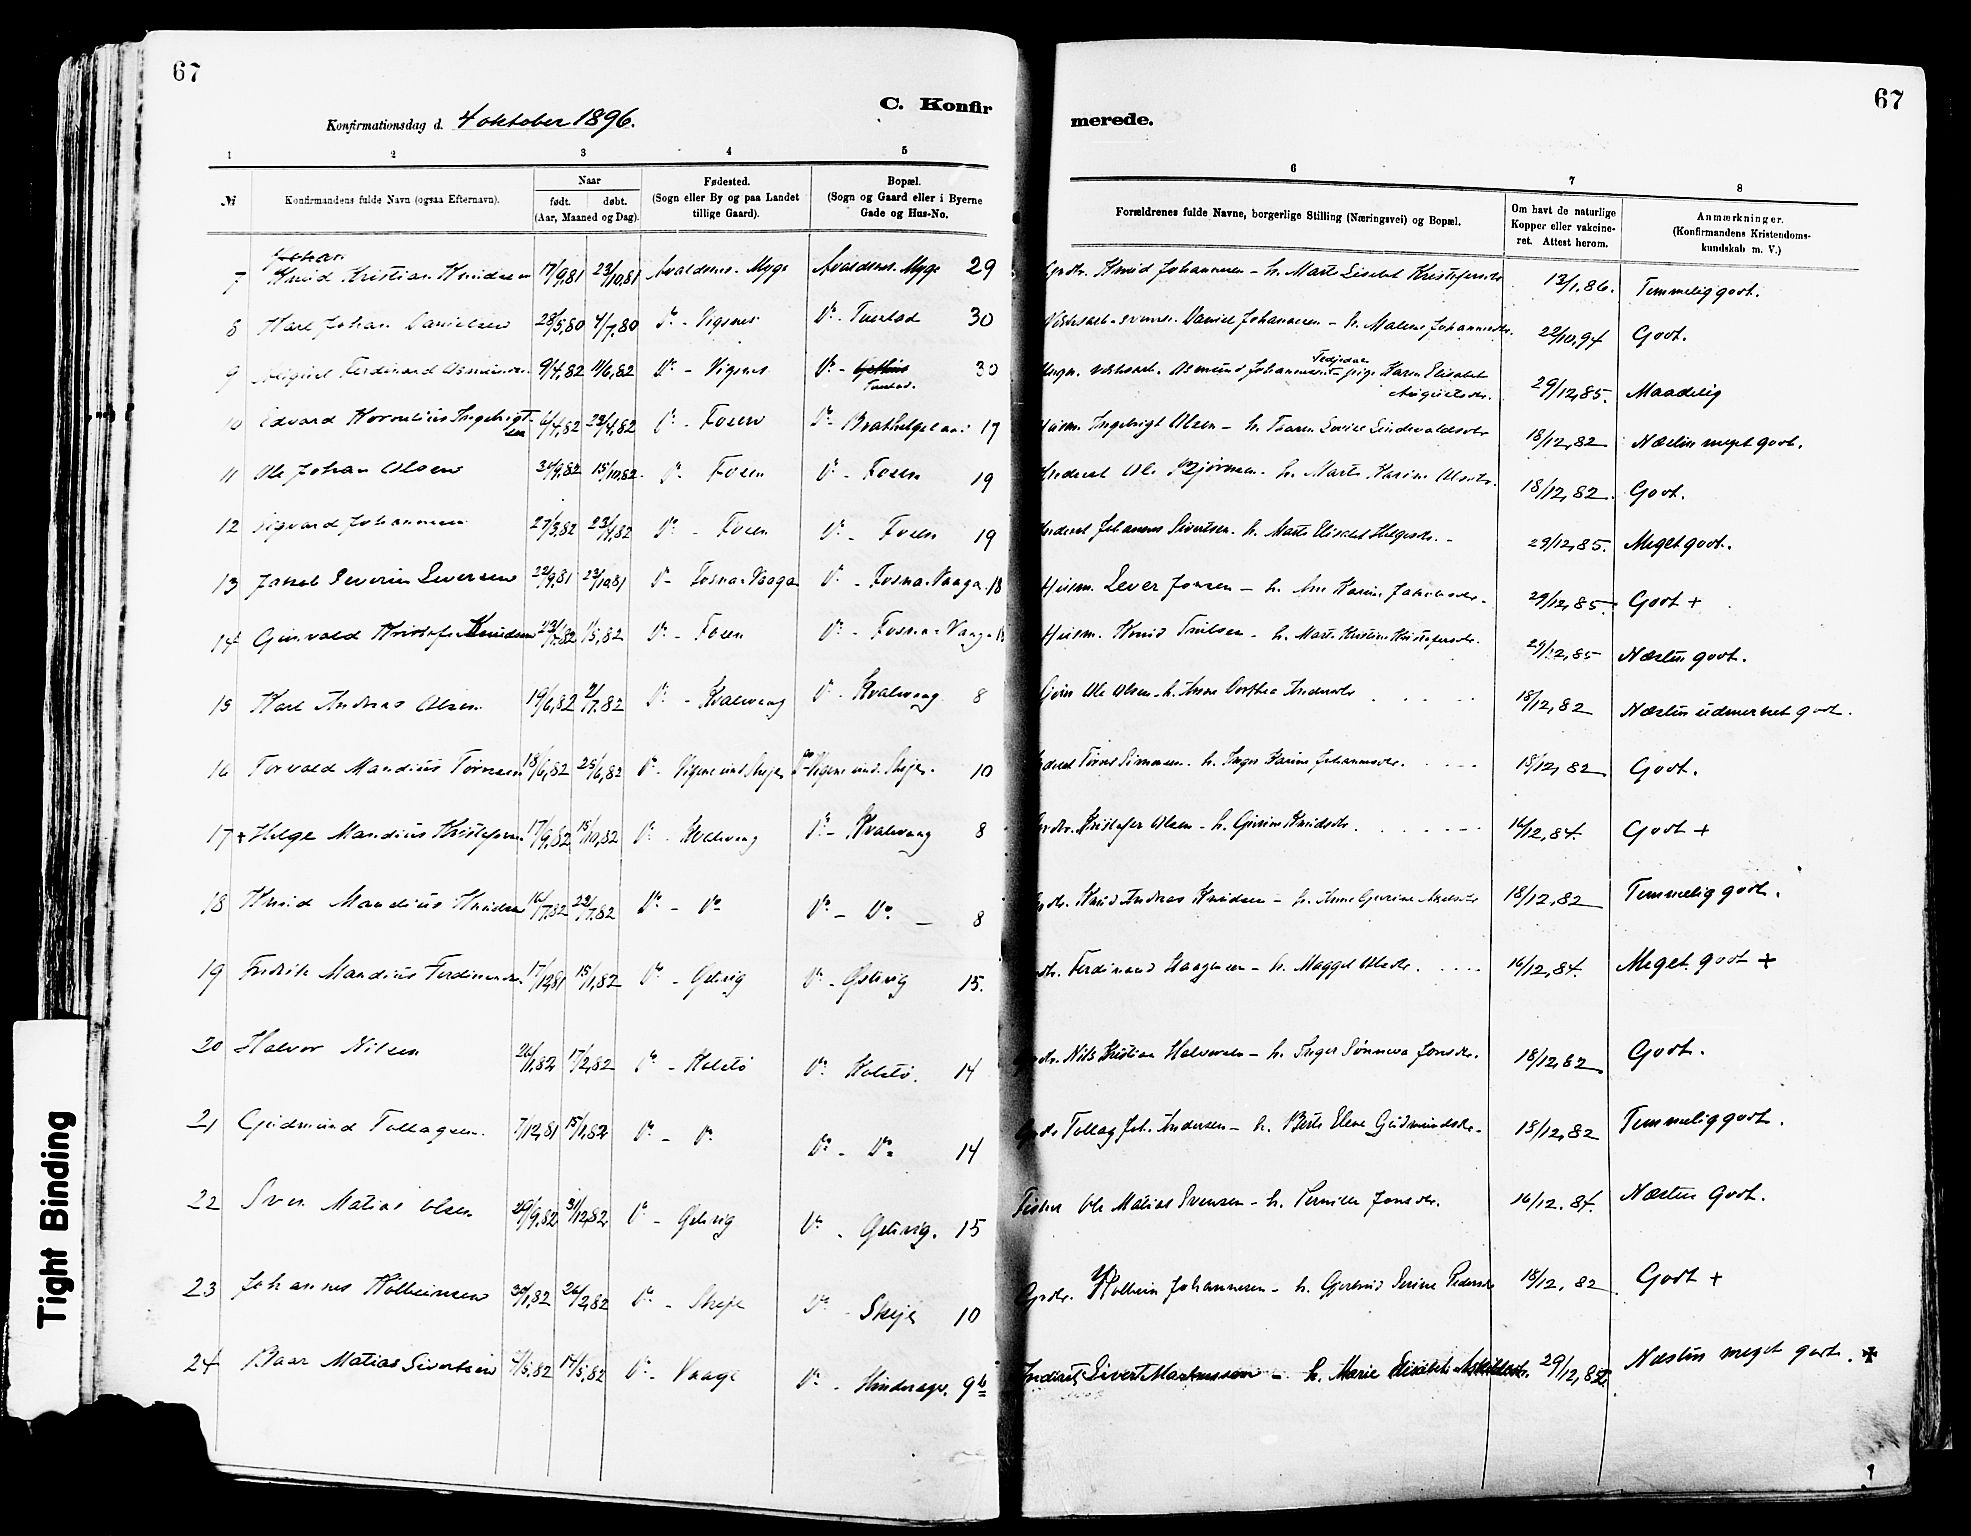 67
67
C. Konfir
merede.
Konfirmationsdag d. 4 oktober 1896.
1 2 3 4 5 6 7 8
№
Konfirmandens fulde Navn (ogsaa Efternavn).
Naar
født. døbt.
(Aar, Maaned og Dag).
Fødested.
(Sogn eller By og paa Landet
tillige Gaard).
Bopæl.
(Sogn og Gaard eller i Byerne
Gade og Hus-No.
Forældrenes fulde Navne, borgerlige Stilling (Næringsvei) og Bopæl.
Om havt de naturlige
Kopper eller vakcine-
ret. Attest herom.
Anmærkninger.
(Konfirmandens Kristendoms-
kundskab m. V.)
Johan
7 Knud Kristian Knudsen 17/9,81 23/10,81 Avaldsnes. Myge Avaldsnes. Myge 29 Knud Johannesen - h. Marte Lisebet 13/1,86. Temmelig godt.
8 Karl Johan Danielsen 28/5,80 4/7,80 Do - Vigsnes Do - Tuestad 30 Daniel Johannesen - h. Malene Johannesdr. 22/10,94 Godt.
9 Ferdinand Asmundsen 9/4,82 11/6,82 Do - Vigsnes Do - 30 Asmund Johannesen pige Karen Elisabet 29/12,85. Maadelig
Tuestad.
Augustsdr.
10 Edvard Kornelius Ingebrigt- 6/4,82 23/4,82 Do - Fosen Do - 17 Husm. Ingebrigt Olsen - h. 18/12,82 Næsten meget godt.
sen
11 Ole Johan Olsen 30/9,82 15/10,82. Do - Fosen Do - Fosen 19 Inderst Ole Bjørnsen - h. Marte Karine Olsdtr. 18/12,82. Godt.
12 Sigvard Johannesen 27/3,82 23/4,82 Do - Fosen Do - Fosen 19 Inderst Johannes Sivertsen - h. Marte Elisabet Helgesdr. - 29/12,85. Meget godt.
13 Jakob Severin Seversen 22/9,81 23/10,81 Do - Fosna-Vaaga Do - Fosna-Vaaga. 18 Husm. Sever Jonsen - h. Ane Karine Jakobsdr. 29/12,85. Godt +
14 Gunvald Kristofer Knudsen 23/4,82 1/5,82 Do - Fosen Do - Fosna-Vaaga 18 Husm. Knud - h. Marte Kristine Kristofersdr. 29/12,85 Næsten godt.
15 Karl Andreas Olsen 19/6,82 2/7,82 Do - Kvalevaag Do - Kvalevaag 8 Ole Olsen - h. Anne Dorthea Andersdr 18/12,82 Næsten udmerket godt.
16 Torvald Mandius Tørresen 18/6,82 25/6,82 Do - Vigene und. Skeje Do - Vigene und. Skeje. 10 Inderst Tørres Simonsen - h. Inger Karine Johannesdr. 18/12,82. Godt.
17 + Helge Mandius Kristofersen 17/9,82 15/10,82 Do - Kvalevaag Do - Kvalevaag 8 Kristofer Olsen - h. Gurine Knudsdr. 16/12,84. Godt +
18 Knud Mandius Knudsen 16/7,82 22/7,82 Do - Do Do - Do - 8 Knud Andreas Knudsen - h. Anne Gurine 18/12,82 Temmelig godt.
19 Fredrik Mandius Ferdinandsen 17/12,81 15/1,82 Do - Gitvig Do - Gitvig 15. Ferdinand Haagensen - h. Maggel Olsdr. 16/12,84. Meget godt +
20 Halvor Nilsen 26/1,82 17/2,82 Do - Kolstø Do Kolstø. 14 Nils Kristian Halvorsen - h. Inger Sønneva Jonsdr. 18/12,82. Godt.
21 Gudmund Tollagsen. 7/12,81 15/1,82 Do - Do Do - Do 14 Tollag Joh. Andersen - h. Berte Elene Gudmundsdr. 18/12,82 Temmelig godt.
22 Sven Matias Olsen 29/9,82 31/12,82 Do - Gitvig Do - Gitvig. 15 Fisker Ole Matias Svensen - h. Pernille Jonsdr. 16/12,84. Næsten Godt.
23 Johannes Kolbeinsen 30/1,82 26/2,82 Do - Skeje Do - Skeje 10 Grdbr. Kolbein Johannesen - h. Gjertrud Serine Pedersdr 18/12,82. Godt +
24 Baar Matias Sivertsen 4/5,82 14/5,82 Do - Vaage Do - Hinderager. 9b Inderst, Sivert Markussen - h. Marie Elisabet 29/12,85. Næsten meget godt. +
Tight Binding